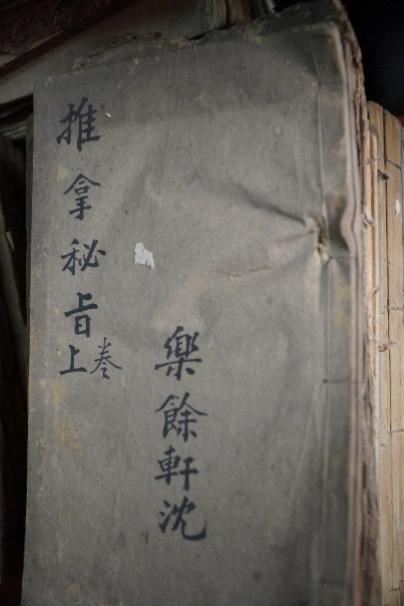 推拿秘旨卷上
樂餘軒沈